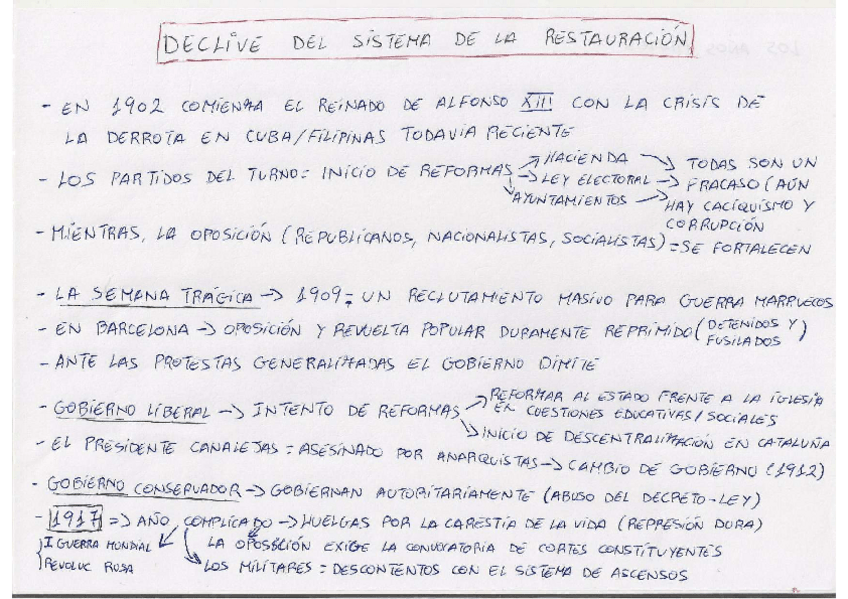 DECLIVE DEL SISTEMA DE LA RESTAURACIÓN
- EN 1902 COMIENZA EL REINADO DE ALFONSO XIII CON LA CRISIS DE
LA DERROTA EN CUBA/FILIPINAS TODAVIA RECIENTE
- LOS PARTIDOS DEL TURNO = INICIO DE REFORMAS → HACIENDA → TODAS SON UN
→ LEY ELECTORAL → FRACASO (AÚN
→ AYUNTAMIENTOS → HAY CACIQUISMO Y
CORRUPCIÓN
- MIENTRAS, LA OPOSICIÓN (REPUBLICANOS, NACIONALISTAS, SOCIALISTAS) = SE FORTALECEN
- LA SEMANA TRÁGICA → 1909 = UN RECLUTAMIENTO MASIVO PARA GUERRA MARRUECOS
- EN BARCELONA → OPOSICIÓN Y REVUELTA POPULAR DURAMENTE REPRIMIDO (DETENIDOS Y
FUSILADOS)
- ANTE LAS PROTESTAS GENERALIZADAS EL GOBIERNO DIMITE
- GOBIERNO LIBERAL → INTENTO DE REFORMAS → REFORMAR AL ESTADO FRENTE A LA IGLESIA
EN CUESTIONES EDUCATIVAS/SOCIALES
→ INICIO DE DESCENTRALIZACIÓN EN CATALUÑA
- EL PRESIDENTE CANALEJAS = ASESINADO POR ANARQUISTAS → CAMBIO DE GOBIERNO (1912)
- GOBIERNO CONSERVADOR → GOBIERNAN AUTORITARIAMENTE (ABUSO DEL DECRETO-LEY)
- 1917 => AÑO COMPLICADO → HUELGAS POR LA CARESTÍA DE LA VIDA (REPRESIÓN DURA)
I GUERRA MUNDIAL
REVOLUC RUSA
LA OPOSICIÓN EXIGE LA CONVOCATORIA DE CORTES CONSTITUYENTES
LOS MILITARES = DESCONTENTOS CON EL SISTEMA DE ASCENSOS